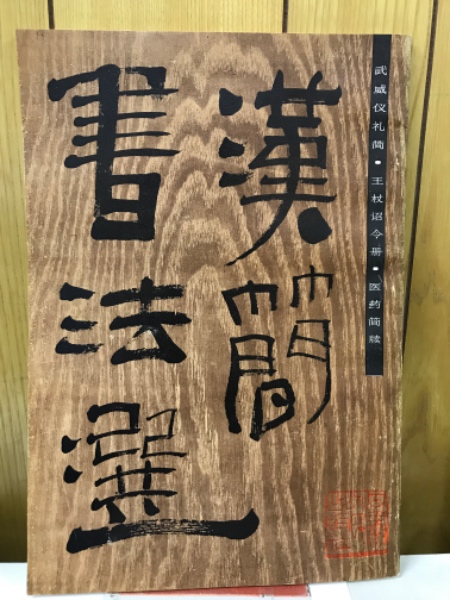 武威仪礼简·王杖诏令册·医药简牍
漢簡
書法選